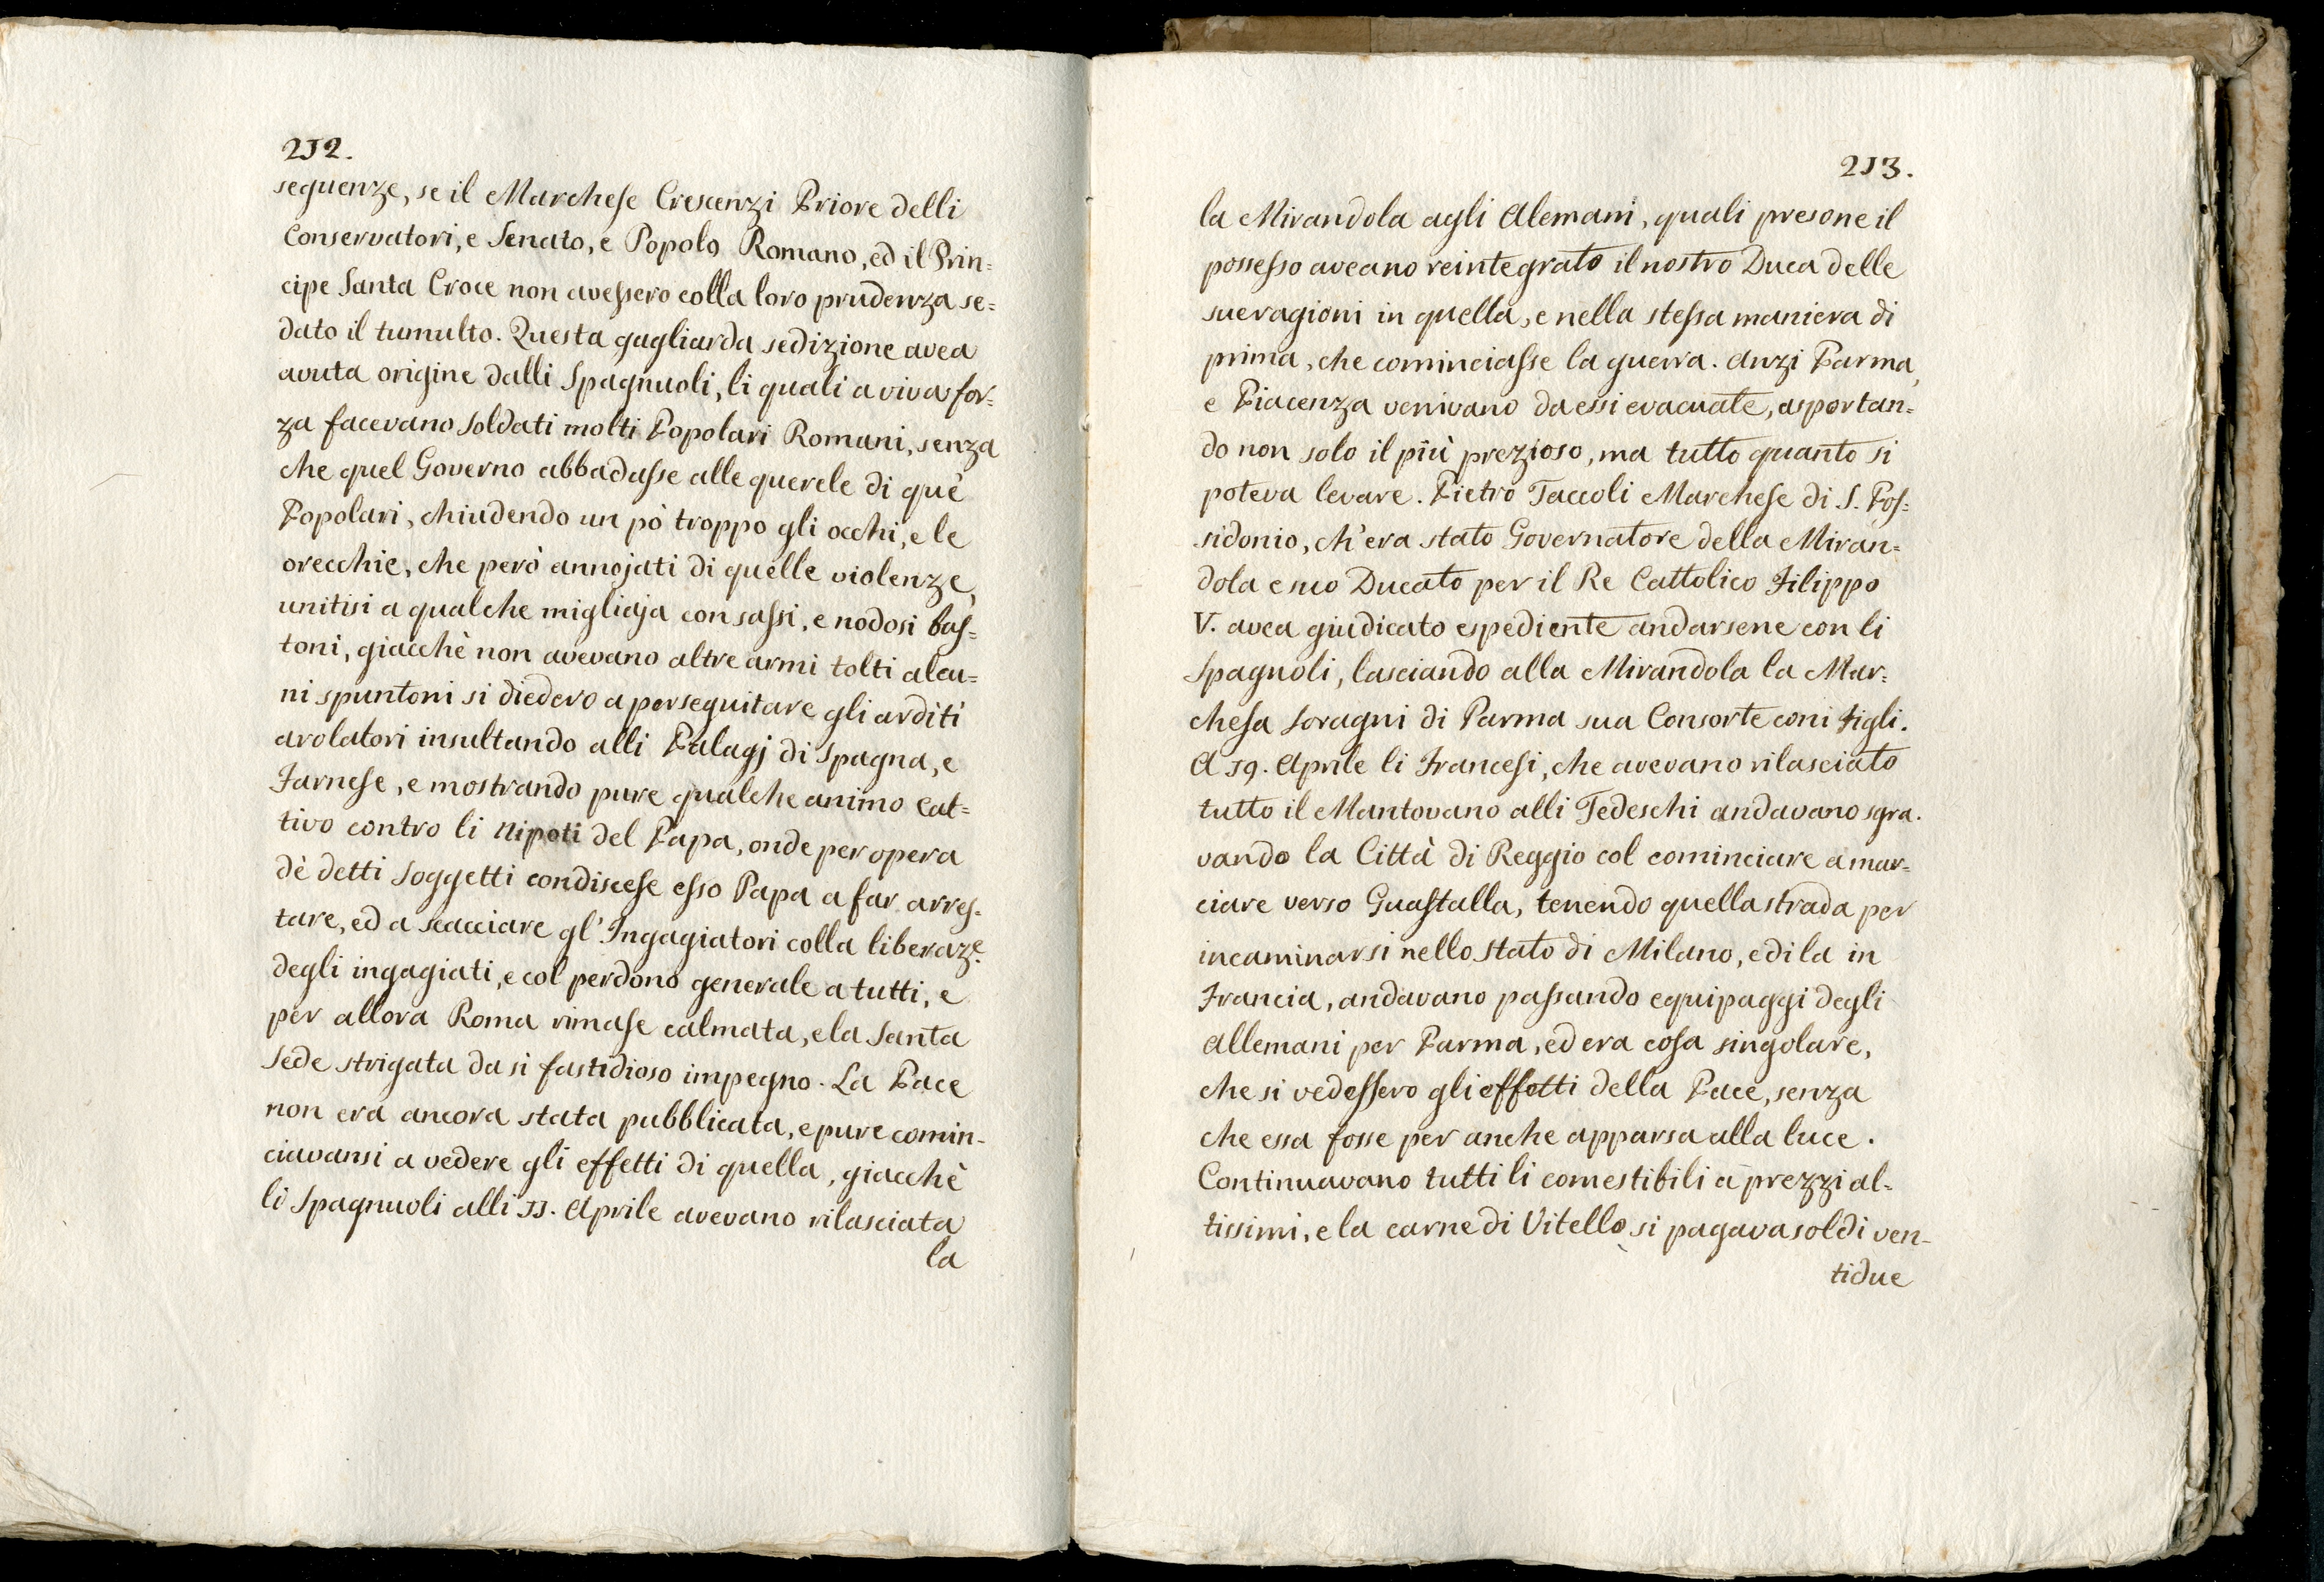 212.
seguenze, se il Marchese Crescenzi Priore delli
Conservatori, e Senato, e Popolo Romano, ed il Prin=
cipe Santa Croce non avessero colla loro prudenza se=
dato il tumulto. Questa gagliarda sedizione avea
avuta origine dalli Spagnuoli, li quali a viva for=
za facevano soldati molti Popolari Romani, senza
che quel Governo abbadasse alle querele di què
Popolari, chiudendo un pò troppo gli occhi, e le
orecchie, che però annojati di quelle violenze,
unitisi a qualche migliaja con sassi, e nodosi bas=
toni, giacchè non avevano altre armi tolti alcu=
ni spuntoni si diedero a perseguitare gli arditi
arolatori insultando alli Palagj di Spagna, e
Farnese, e mostrando pure qualche animo cat=
tivo contro li Nipoti del Papa, onde per opera
dè detti soggetti condiscese esso Papa a far arres=
tare, ed a scacciare gl' Ingagiatori colla liberaz.e
degli ingagiati, e col perdono generale a tutti, e
per allora Roma rimase calmata, e la Santa
Sede strigata da sì fastidioso impegno. La Pace
non era ancora stata pubblicata, e pure comin=
ciavansi a vedere gli effetti di quella, giacchè
li Spagnuoli alli 11. Aprile avevano rilasciata
la
213.
la Mirandola agli Alemani, quali presone il
possesso aveano reintegrato il nostro Duca delle
sue ragioni in quella, e nella stessa maniera di
prima, che cominciasse la guerra. Anzi Parma,
e Piacenza venivano da essi evacuate, asportan=
do non solo il più prezioso, ma tutto quanto si
poteva levare. Pietro Taccoli Marchese di S. Pos=
sidonio, ch'era stato Governatore della Miran=
dola e suo Ducato per il Re Cattolico Filippo
V. avea giudicato espediente andarsene con li
Spagnoli, lasciando alla Mirandola la Mar=
chesa Soragni di Parma sua Consorte con i figli.
A 19. Aprile li Francesi, che avevano rilasciato
tutto il Mantovano alli Tedeschi andavano sgra=
vando la Città di Reggio col cominciare a mar=
ciare verso Guastalla, tenendo quella strada per
incaminarsi nello stato di Milano, e di la in
Francia, andavano passando equipaggi degli
Allemani per Parma, ed era cosa singolare,
che si vedessero gli effetti della Pace, senza
che essa fosse per anche apparsa alla luce.
Continuavano tutti li comestibili a prezzi al=
tissimi, e la carne di Vitello si pagava soldi ven=
tidue